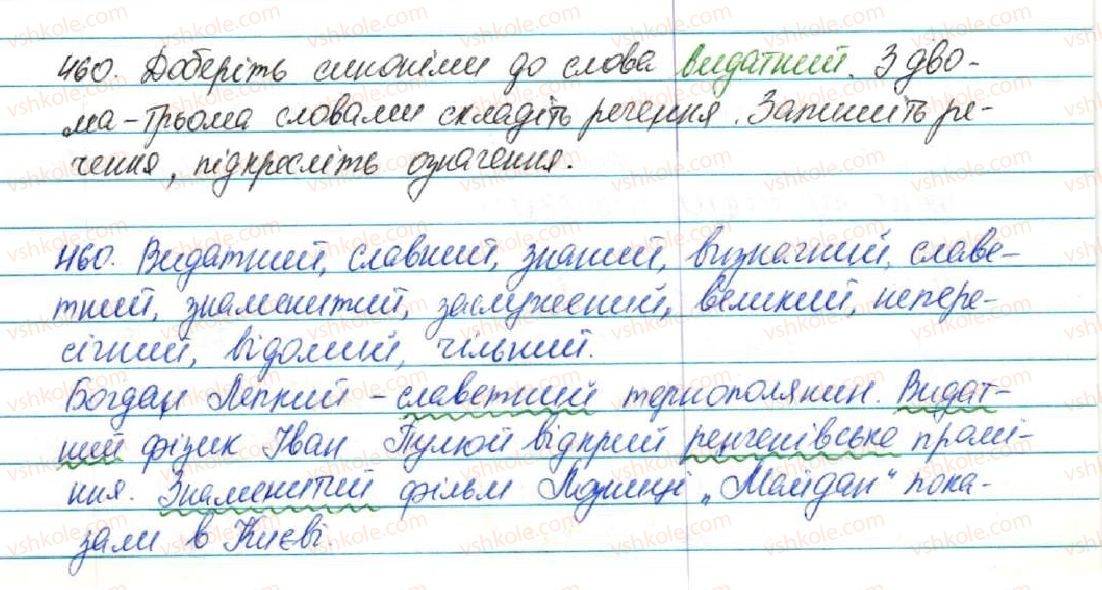 460. Доберіть синоніми до слова видатний. З дво-
ма-трьома словами складіть речення. Запишіть ре-
чення, підкресліть означення.
460. Видатний, славний, знаний, визначний, славе-
тний, знаменитий, заслужений, великий, непере-
січний, відомий, чільний.
Богдан Лепкий – славетний тернополянин. Видат-
ний фізик Іван Пулюй відкрий ренгенівське промі-
ння. Знаменитий фільм Лозниці „Майдан" пока-
зали в Києві.